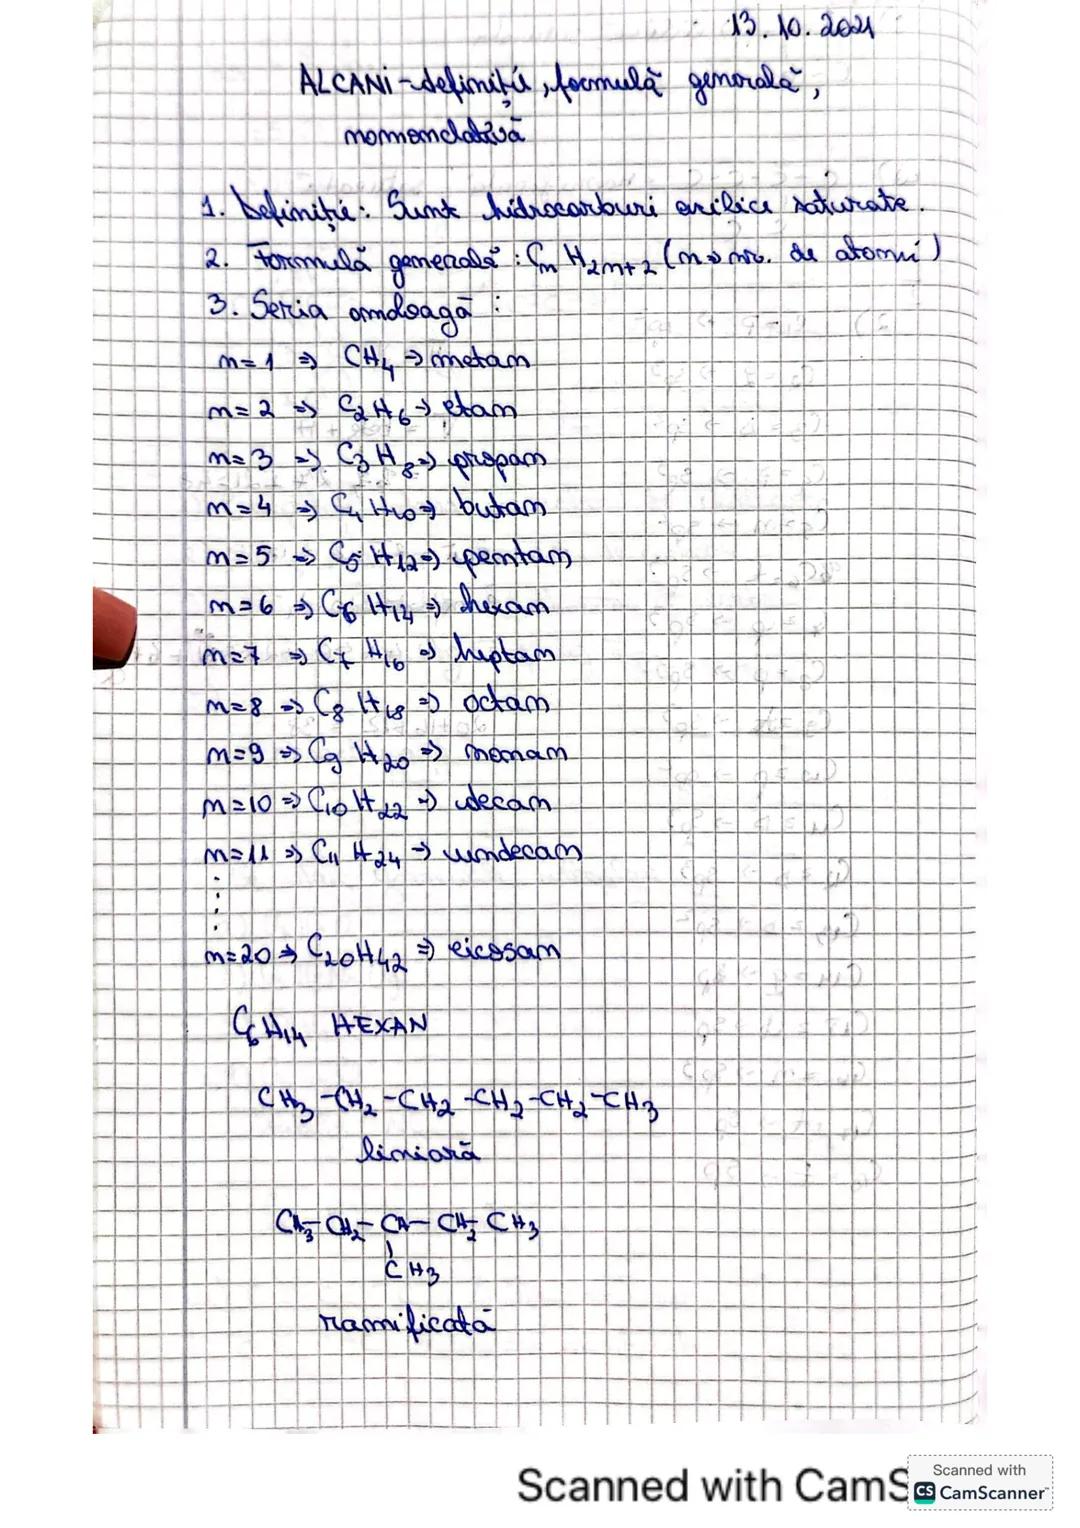 13.10.2021
ALCANI - definiții, formulă generală,
nomenclatură
1. Definiție: Sunt hidrocarburi acilice saturate.
2. Formulă generală: CnH2n+2 (n → nr. de atomi)
3. Seria omoloagă:
n=1 => CH4 => metan
n=2 => C2H6 => etan
n=3 => C3H8 => propan
n=4 => C4H10 => butan
n=5 => C5H12 => pentan
n=6 => C6H14 => hexan
n=7 => C7H16 => heptan
n=8 => C8H18 => octan
n=9 => C9H20 => nonan
n=10 => C10H22 => decan
n=11 => C11H24 => undecan
⋮
n=20 => C20H42 => eicosan
C6H14 HEXAN
CH3-CH2-CH2-CH2-CH2-CH3
liniară
CH3-CH2-CH-CH2-CH3
CH3
ramificată
Scanned with CamS
Scanned with
CS CamScanner